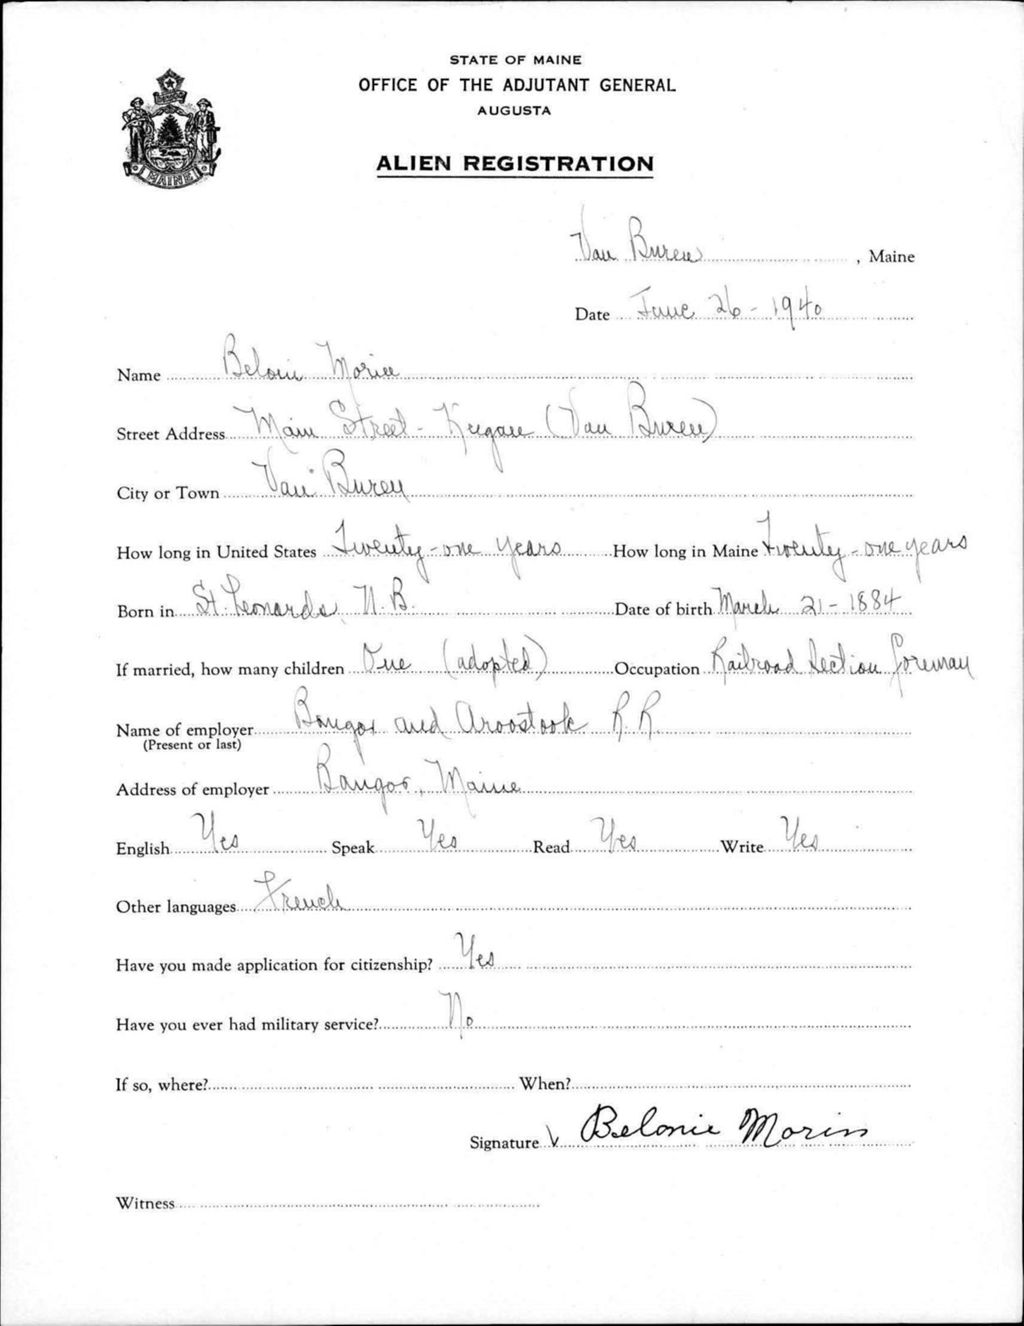 STATE OF MAINE
OFFICE OF THE ADJUTANT GENERAL
AUGUSTA
ALIEN REGISTRATION
MAINE
Van Buren, Maine
Date June 26 - 1940
Name Beloni Morin
Street Address Main Street - Keegan (Van Buren)
City or Town Van Buren
How long in United States Twenty-one years How long in Maine Twenty-one years
Born in St. Leonards, N.B. Date of birth March 21 - 1884
If married, how many children One (adopted) Occupation Railroad Section foreman
Name of employer Bangor and Aroostook R.R.
(Present or last)
Address of employer Bangor, Maine
English Yes Speak Yes Read Yes Write Yes
Other languages French
Have you made application for citizenship? Yes
Have you ever had military service? No
If so, where? When?
Signature Belonie Morin
Witness